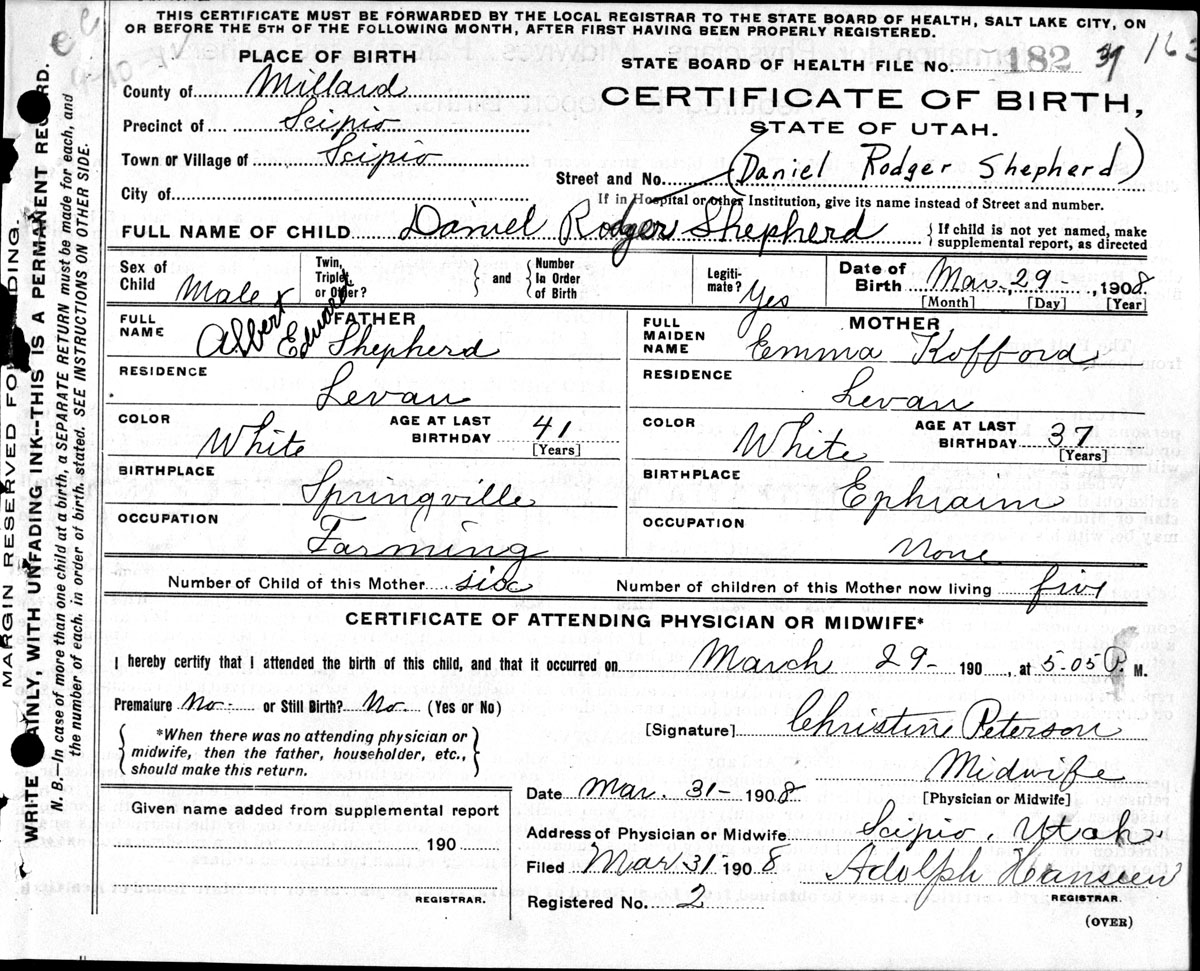 THIS CERTIFICATE MUST BE FORWARDED BY THE LOCAL REGISTRAR TO THE STATE BOARD OF HEALTH, SALT LAKE CITY, ON
OR BEFORE THE 5TH OF THE FOLLOWING MONTH, AFTER FIRST HAVING BEEN PROPERLY REGISTERED.
PLACE OF BIRTH
STATE BOARD OF HEALTH FILE No. 182 39 163
County of Millard
CERTIFICATE OF BIRTH,
Precinct of Scipio
STATE OF UTAH.
Town or Village of Scipio
Street and No. (Daniel Rodger Shepherd)
City of
If in Hospital or other Institution, give its name instead of Street and number.
FULL NAME OF CHILD Daniel Rodger Shepherd
{If child is not yet named, make
supplemental report, as directed
Sex of Child Male
Twin, Triplet, or Other? } and { Number In Order of Birth
Legitimate? Yes
Date of Birth Mar. 29 - , 1908
[Month] [Day] [Year]
FATHER
FULL NAME Albert Edward Shepherd
MOTHER
FULL MAIDEN NAME Emma Kofford
RESIDENCE Levan
RESIDENCE Levan
COLOR White AGE AT LAST BIRTHDAY 41 [Years]
COLOR White AGE AT LAST BIRTHDAY 37 [Years]
BIRTHPLACE Springville
BIRTHPLACE Ephraim
OCCUPATION Farming
OCCUPATION None
Number of Child of this Mother six Number of children of this Mother now living five
CERTIFICATE OF ATTENDING PHYSICIAN OR MIDWIFE*
I hereby certify that I attended the birth of this child, and that it occurred on March 29 - 190 , at 5.05 P. M.
Premature No. or Still Birth? No. (Yes or No)
[Signature] Christine Peterson
{*When there was no attending physician or
midwife, then the father, householder, etc.,
should make this return.}
Midwife
[Physician or Midwife]
Date Mar. 31 - 1908
Given name added from supplemental report
190
REGISTRAR.
Address of Physician or Midwife Scipio, Utah
Filed Mar 31 - 1908 Adolph Hansen
REGISTRAR.
Registered No. 2
(OVER)
MARGIN RESERVED FOR BINDING.
WRITE PLAINLY, WITH UNFADING INK--THIS IS A PERMANENT RECORD.
N. B.—In case of more than one child at a birth, a SEPARATE RETURN must be made for each, and
the number of each, in order of birth, stated. SEE INSTRUCTIONS ON OTHER SIDE.